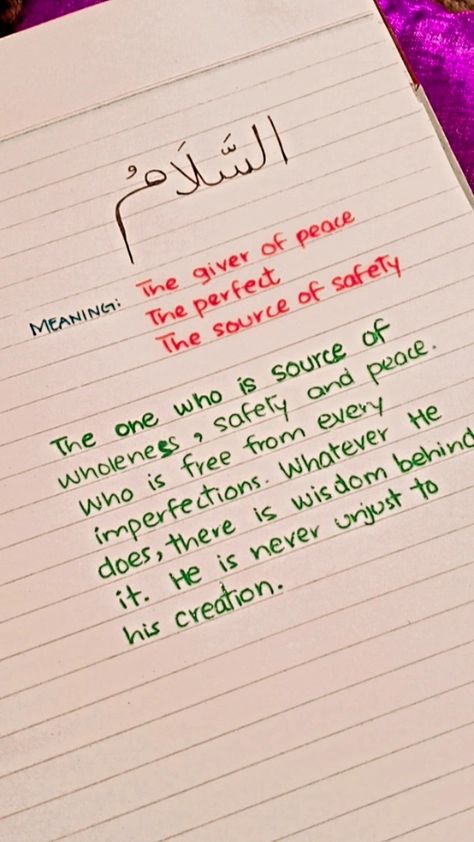 السَّلَامُ
MEANING: The giver of peace
The perfect
The source of safety
The one who is source of
wholeness, safety and peace.
Who is free from every
imperfections. Whatever He
does, there is wisdom behind
it. He is never unjust to
his creation.